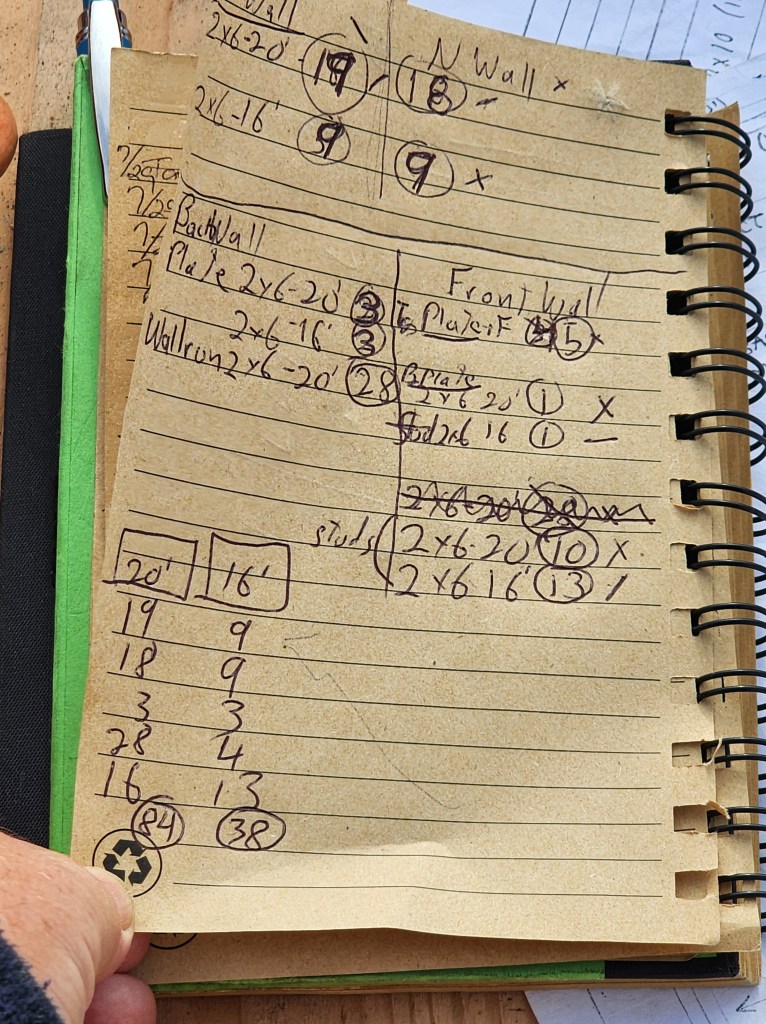 Wall
2x6-20' 19
2x6-16' 9
N Wall x
18 -
9 x
Back Wall
Plate 2x6-20' 3
2x6-16' 3
Wall run 2x6-20' 28
Front Wall
5 x
B Plate
2x6 20' 1 X
2x6 16 1 -
2x6-20'
studs
2x6-20' 10 X
2x6 16' 13 /
20' 16'
19 9
18 9
3 3
28 4
16 13
84 38
7/29